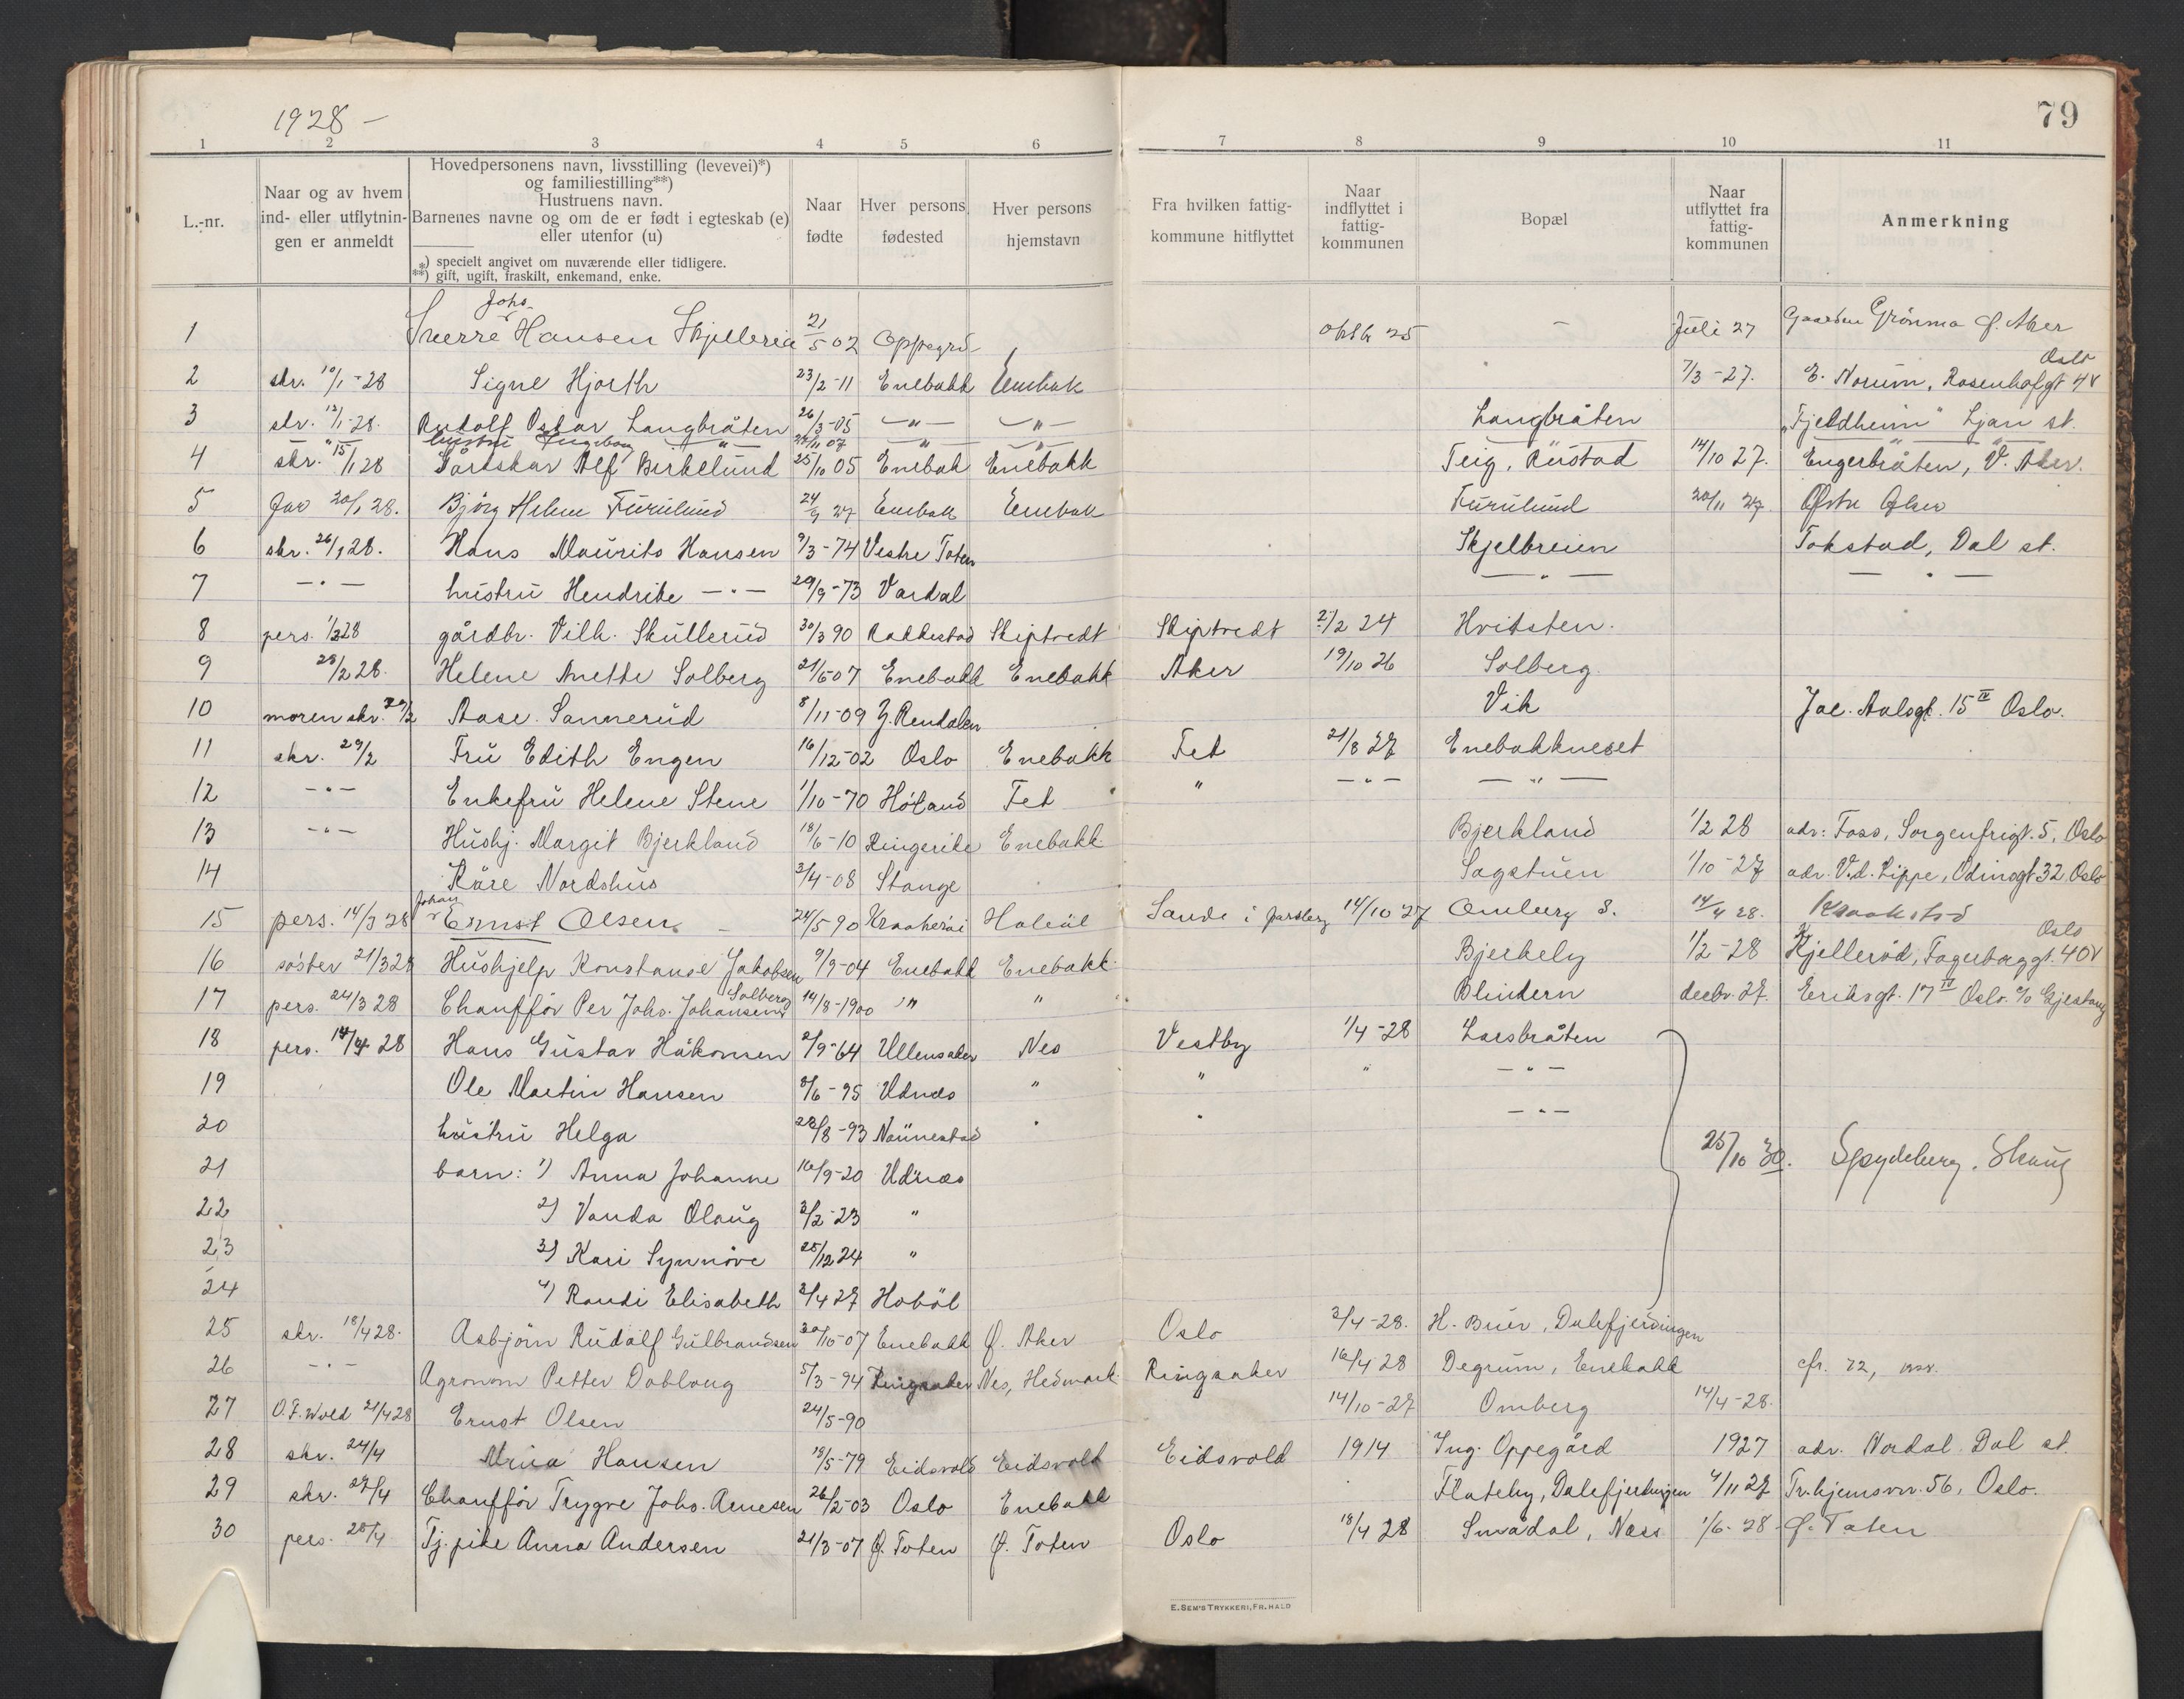 1928 –
79
1 2 3 4 5 6 7 8 9 10 11
L.-nr.
Naar og av hvem
ind- eller utflytnin-
gen er anmeldt
Hovedpersonens navn, livsstilling (levevei)*)
og familiestilling**)
Hustruens navn.
Barnenes navne og om de er født i egteskab (e)
eller utenfor (u)
*) specielt angivet om nuværende eller tidligere.
**) gift, ugift, fraskilt, enkemand, enke.
Naar
fødte
Hver persons
fødested
Hver persons
hjemstavn
Fra hvilken fattig-
kommune hitflyttet
Naar
indflyttet i
fattig-
kommunen
Bopæl
Naar
utflyttet fra
fattig-
kommunen
Anmerkning
Johs.
1 Sverre Hansen 21/5 02 Oppegrd – 25 – Juli 27 Gaarden Grönmo Ø. Aker
Oslo
2 skr. 10/1-28 Signe Hjorth 23/2-11 Enebakk Enebak 7/3-27. E. Norum, Rosenhofgt 4V
3 skr. 12/1-28. Rudolf Oskar Langbråten 26/3-05 –"– –"– Langbråten „Fjeldheim" Ljan st.
hustru Ingeborg –"– 07 –"– –"– –"– –"–
4 skr. 15/1 28 Alf Birkelund 25/10 05 Enebak Enebakk Teig, Rustad 14/10 27. Engerbråten, V. Aker.
5 20/1 28. Bjørg Helene Furulund 24/9 27 Enebak Enebak Furulund 20/11 27 Østre Aker
6 skr. 26/1 28. Hans Maurits Hansen 9/3-74 Vestre Toten Skjelbreien Tokstad, Dal st.
7 –"– hustru Hendrike –"– 29/9-73 Vardal –"– –"–
8 pers. 1/2 28 gårdbr. Vilh. Skullerud 30/3 90 Rakkestad Skiptvedt Skiptvedt 2/2 24 Hvitsten.
9 28/2 28. Helene Anette Solberg 21/5 07 Enebakk Enebakk Aker 19/10 26 Solberg.
10 moren skr. 29/2 Aase Sannerud 8/11-09 Y. Rendalen Vik Jac. Aalsgt. 15 IV Oslo.
11 skr. 29/2 Fru Edith Engen 16/12-02 Oslo Enebakk Fet 21/8 27 Enebakkneset
12 –"– Enkefru Helene Stene 1/10-70 Höland Fet " –"– –"–
13 –"– Hushj. Margit Bjerkland 18/6-10 Ringerike Enebakk Bjerkland 1/2 28 adr: Foss, Sorgenfrigt. 5, Oslo
14 Kåre Nordshus 3/4-08 Stange Sagstuen 1/10-27 adr. V.d. Lippe, Odinsgt 32 Oslo
Johan
15 pers. 14/3 28 Ernst Olsen – 24/5 90 Kraakerøi Haböl Sande i Jarlsberg 14/10 27 Omberg S. 14/4 28. Kraakstad
Oslo
16 søster 21/3 28 Hushjelp Konstanse Jakobsen 9/9-04 Enebakk Enebakk Bjerkely 1/2-28 Kjelleröd, Fagerborggt. 40V
Solberg
17 pers. 24/3 28 Chaufför Per Johs. Johansen 14/8-1900 " " Blindern decbr. 27. Eriksgt. 17 IV Oslo. c/o Gjestang
18 pers. 14/4 28 Hans Gustav Håkonsen 2/9-64 Ullensaker Nes Vestby 1/4-28 Larsbråten
19 Ole Martin Hansen 8/6-95 Udnæs " " " –"–
20 hustru Helga 28/8-93 Nannestad " " –"–
21 barn: 1) Anna Johanne 16/9-20 Udnæs 25/10 30. Spydeberg, Skaug
22 2) Vanda Olaug 3/2-23 "
23 3) Kari Synnöve 25/12 24 "
24 4) Randi Elisabeth 2/4 27 Hoböl
25 skr. 18/4 28. Asbjörn Rudolf Gulbrandsen 30/10-07 Enebakk Ø. Aker Oslo 3/4-28. H. Buer, Dalefjerdingen
26 –"– Agronom Petter Dobloug 5/3-94 Ringsaker Nes, Hedmark. Ringsaker 16/4 28 Degrum, Enebakk cfr. 72,
27 O.F. Wold 21/4 28 Ernst Olsen 24/5-90 14/10-27 Omberg 14/4-28.
28 skr. 24/4 Hansen 18/5-79 Eidsvold Eidsvold Eidsvold 1914 Ing. Oppegård 1927 adr. Nordal Dal st.
29 skr. 27/4 Chaufför Trygve Johs. Arnesen 26/2-03 Oslo Enebakk Flateby, Dalefjerdingen 4/11 27 Tr.hjemsvn. 56, Oslo.
30 pers. 28/4 Tj.pike Anna Andersen 21/3-07 Ø. Toten Ø. Toten Oslo 18/4 28 Smådal, Næss 1/6-28 Ø. Toten
E. SEM'S TRYKKERI, FR.HALD